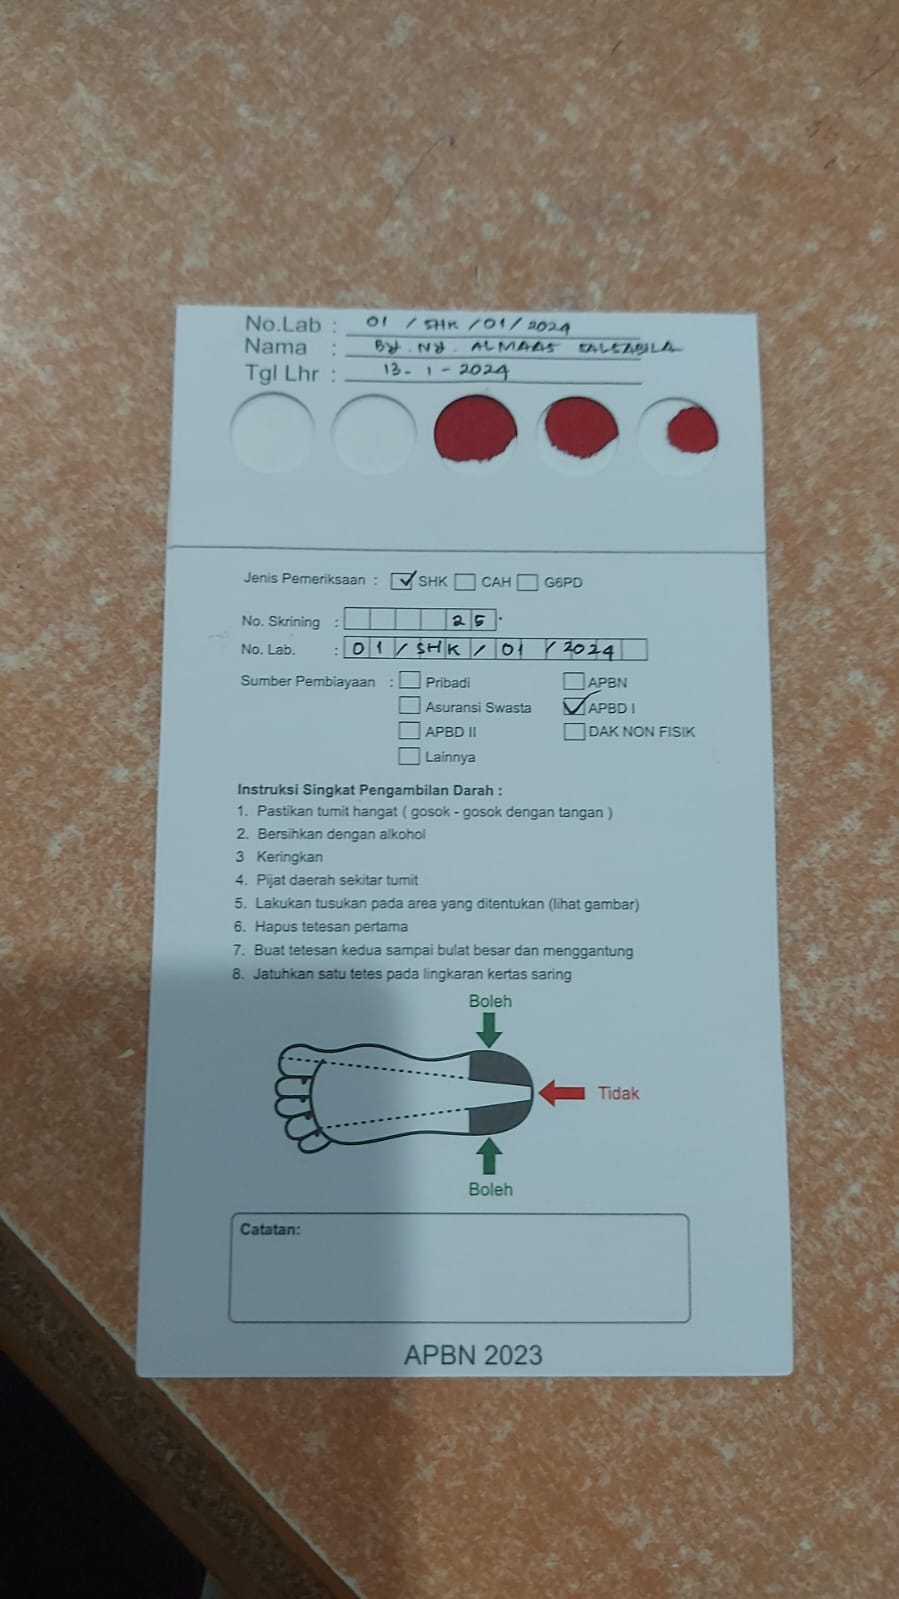 No.Lab : 01 / SHK / 01 / 2024
Nama : BY. NY. ALMAAS SALSABILA
Tgl Lhr : 13 - 1 - 2024
Jenis Pemeriksaan : SHK CAH G6PD
No. Skrining : 25
No. Lab. : 01 / SHK / 01 / 2024
Sumber Pembiayaan : Pribadi APBN
Asuransi Swasta APBD I
APBD II DAK NON FISIK
Lainnya
Instruksi Singkat Pengambilan Darah :
1. Pastikan tumit hangat ( gosok - gosok dengan tangan )
2. Bersihkan dengan alkohol
3 Keringkan
4. Pijat daerah sekitar tumit
5. Lakukan tusukan pada area yang ditentukan (lihat gambar)
6. Hapus tetesan pertama
7. Buat tetesan kedua sampai bulat besar dan menggantung
8. Jatuhkan satu tetes pada lingkaran kertas saring
Boleh
Tidak
Boleh
Catatan:
APBN 2023